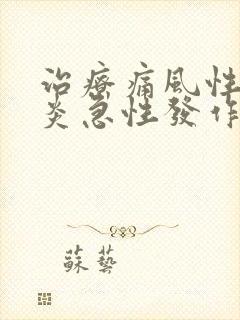 治療痛風性
炎急性發作
蘇藝